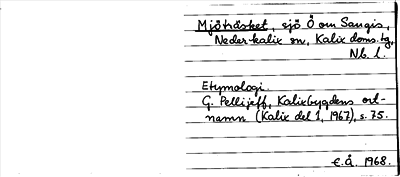 Mjöträsket, sjö Ö om Sangis,
Neder-kalix sn, Kalix doms.tg,
Nb. l.
Etymologi.
G. Pellijeff, Kalixbygdens ort-
namn (Kalix del 1, 1967), s. 75.
E.Å. 1968.